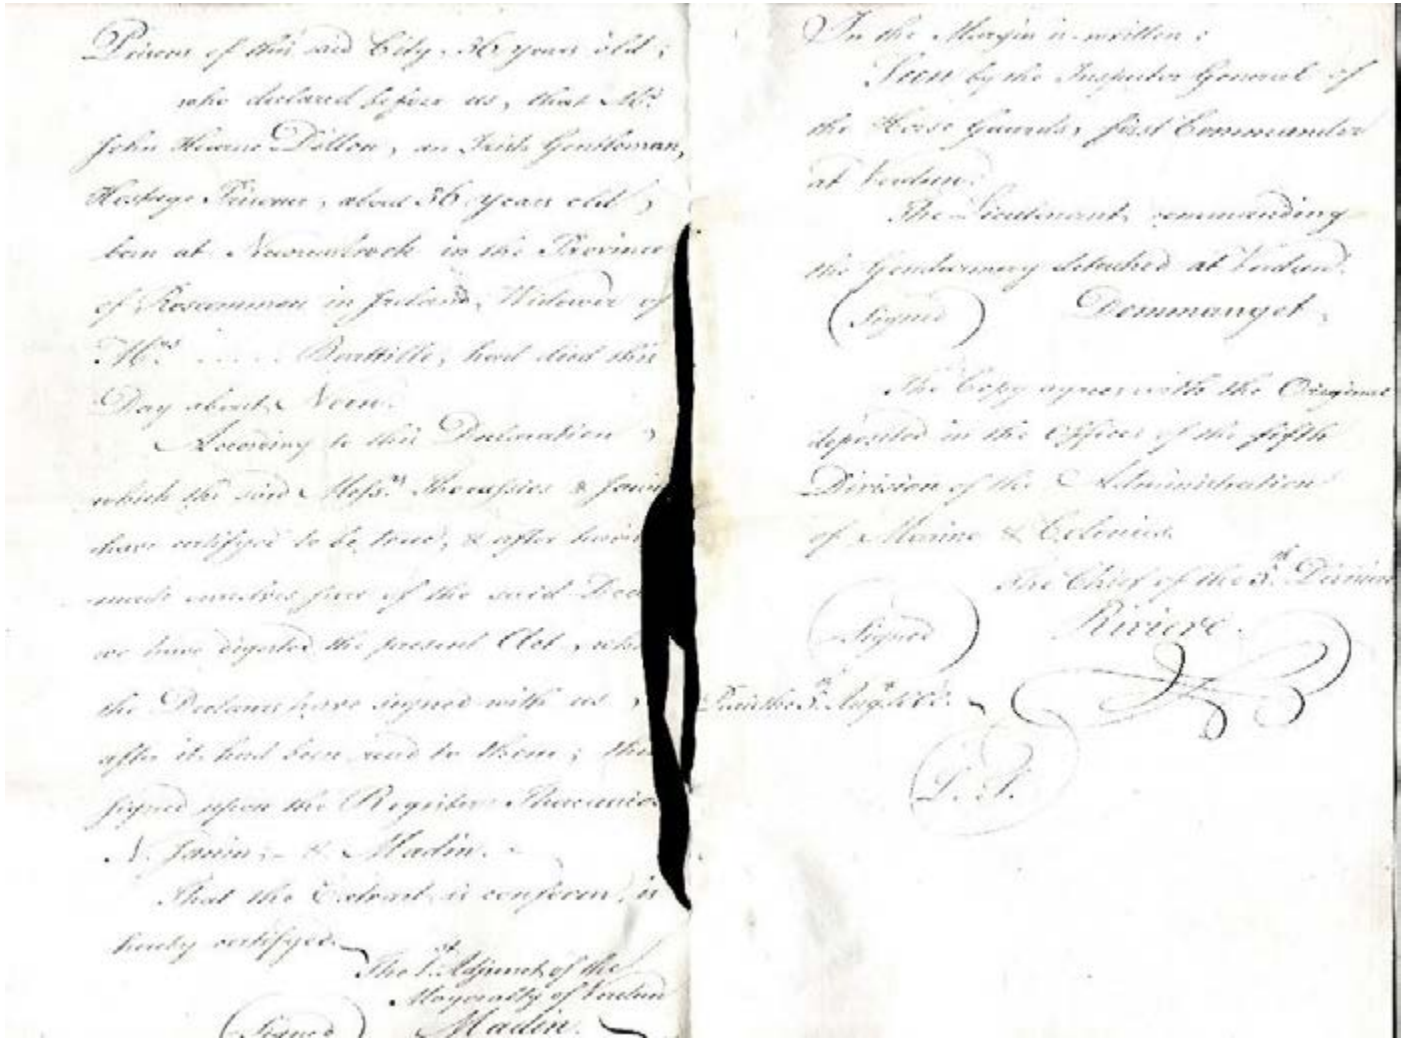 Prison of this said City, 36 years old;
who declared before us, that Mr.
John Hearne Dillon, an Irish Gentleman,
Hostage Prisoner, about 36 years old,
born at in the Province
of Roscommon in Ireland, Widower of
Mrs. ..... had died this
Day about Noon.
According to this Declaration,
which the said Messrs. &
have certifyed to be true, & after having
made ourselves sure of the said
we have digested the present Act,
the Declarers have signed with us,
after it had been read to them; thus
signed upon the Register
N. Janin; - & Madin. -
That the Extract is conform, is
hereby certifyed.
The 1st Adjunct of the
Mayoralty of Verdun
(Signed) Madin.
In the Margin is written:
Seen by the Inspector General of
the Horse Guards, first Commander
at Verdun.
The Lieutenant commanding
the Gendarmery detached at Verdun.
(Signed) Dommanget.
The Copy agrees with the Original
deposited in the Offices of the fifth
Division of the Administration
of Marine & Colonies.
The Chief of the 5th Division
(Signed) Riviere.
Paris the Aug.
L. S.